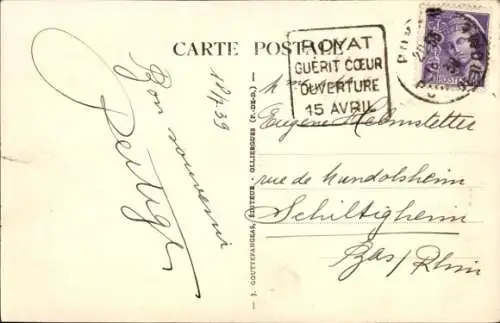 CARTE POSTALE
ROYAT
GUÉRIT CŒUR
OUVERTURE
15 AVRIL
18/4 39
Bon souvenir
J. GOUTTEFANGEAS, ÉDITEUR - OLLIERGUES (P.-DE-D.)
Eugène Helmstetter
rue de Mundolsheim
Schiltigheim
Bas/Rhin